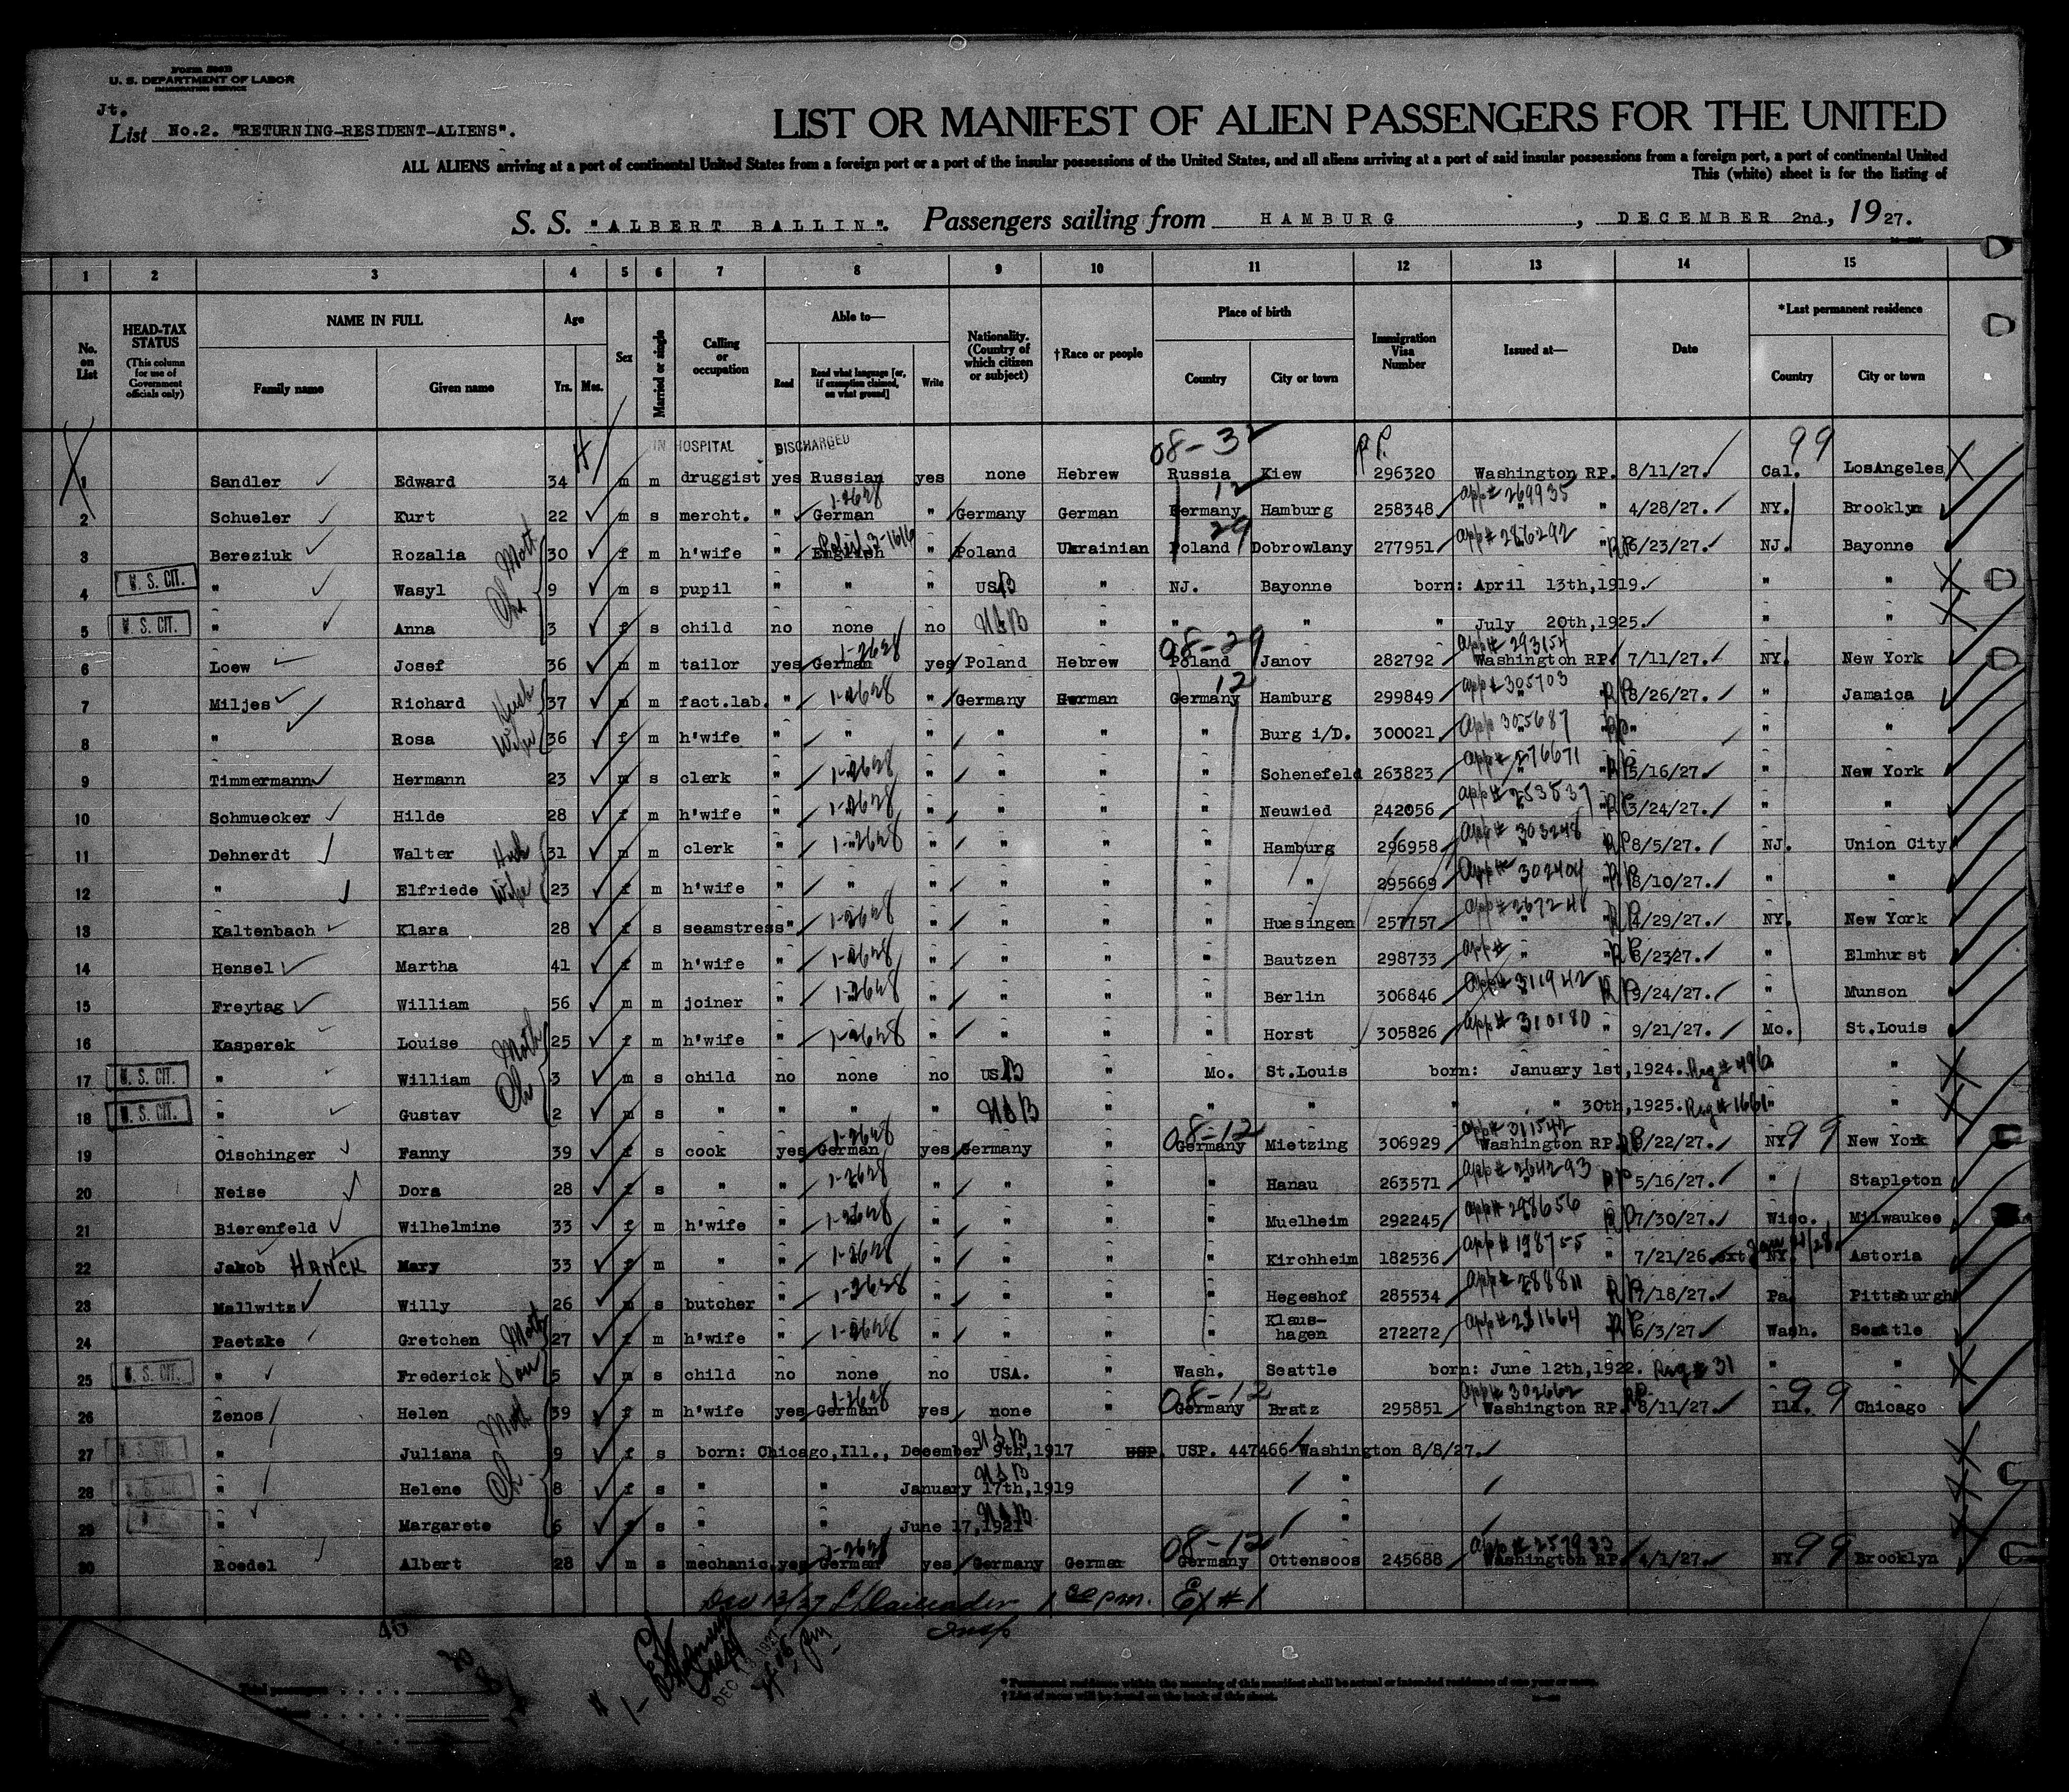 Form 500B
U. S. DEPARTMENT OF LABOR
IMMIGRATION SERVICE
Jt.
List No.2. "RETURNING-RESIDENT-ALIENS".
LIST OR MANIFEST OF ALIEN PASSENGERS FOR THE UNITED
ALL ALIENS arriving at a port of continental United States from a foreign port or a port of the insular possessions of the United States, and all aliens arriving at a port of said insular possessions from a foreign port, a port of continental United
This (white) sheet is for the listing of
S. S. "ALBERT BALLIN". Passengers sailing from HAMBURG, DECEMBER 2nd, 1927.
1 2 3 4 5 6 7 8 9 10 11 12 13 14 15
No. on List
HEAD-TAX STATUS (This column for use of Government officials only)
NAME IN FULL Family name Given name
Age Yrs. Mos.
Sex
Married or single
Calling or occupation
Able to— Read Read what language [or, if exemption claimed, on what ground] Write
Nationality. (Country of which citizen or subject)
†Race or people
Place of birth Country City or town
Immigration Visa Number
Issued at—
Date
*Last permanent residence Country City or town
IN HOSPITAL DISCHARGED 08-32 RP. 99
1 Sandler Edward 34 m m druggist yes Russian yes none Hebrew Russia Kiew 296320 Washington RP. 8/11/27. Cal. LosAngeles
1-2628 12 app# 269935
2 Schueler Kurt 22 m s mercht. " German " Germany German Germany Hamburg 258348 " 4/28/27. NY. Brooklyn
29 app# 286292
3 Bereziuk Rozalia Moth 30 f m h'wife " English " Poland Ukrainian Poland Dobrowlany 277951 " RP 6/23/27. NJ. Bayonne
4 U. S. CIT. " Wasyl Ch 9 m s pupil " " " USB " NJ. Bayonne born: April 13th,1919. " "
5 U. S. CIT. " Anna 3 f s child no none no USB " " " " July 20th,1925. " "
1-2628 08-29 app# 293154
6 Loew Josef 36 m m tailor yes German yes Poland Hebrew Poland Janov 282792 Washington RP. 7/11/27. NY. New York
12 app# 305703
7 Miljes Richard Husb 37 m m fact.lab. " 1-2628 " Germany German Germany Hamburg 299849 " RP 8/26/27. " Jamaica
8 " Rosa Wife 36 f m h'wife " " " " " " Burg i/D. 300021 app 305687 " RP " " "
9 Timmermann Hermann 23 m s clerk " 1-2628 " " " " Schenefeld 263823 app# 276671 " RP 5/16/27. " New York
10 Schmuecker Hilde 28 f m h'wife " 1-2628 " " " " Neuwied 242056 app# 253537 " RP 3/24/27. " "
11 Dehnerdt Walter Husb 31 m m clerk " 1-2628 " " " " Hamburg 296958 app# 303248 RP 8/5/27. NJ. Union City
12 " Elfriede Wife 23 f m h'wife " " " " " " " 295669 app# 302404 " RP 8/10/27. " "
13 Kaltenbach Klara 28 f s seamstress " 1-2628 " " " " Huesingen 257757 app# 267248 " RP 4/29/27. NY. New York
14 Hensel Martha 41 f m h'wife " 1-2628 " " " " Bautzen 298733 app# " RP 8/23/27. " Elmhurst
15 Freytag William 56 m m joiner " 1-2628 " " " " Berlin 306846 app# 311942 RP 9/24/27. " Munson
16 Kasperek Louise Moth 25 f m h'wife " 1-2628 " " " " Horst 305826 app# 310180 " 9/21/27. Mo. St.Louis
17 U. S. CIT. " William Ch 3 m s child no none no USB " Mo. St.Louis born: January 1st,1924. Reg# 496 "
18 U. S. CIT. " Gustav 2 m s " " " USB " " " " " 30th,1925. Reg# 1661 " "
1-2628 08-12 app# 311542
19 Oischinger Fanny 39 f s cook yes German yes Germany " Germany Mietzing 306929 Washington RP. 9/22/27. NY 99 New York
20 Neise Dora 28 f s " " 1-2628 " " " " Hanau 263571 app# 264293 RP 5/16/27. " Stapleton
21 Bierenfeld Wilhelmine 33 f m h'wife " 1-2628 " " " " Muelheim 292245 app# 298656 RP 7/30/27. Wisc. Milwaukee
22 Jakob HANCK Mary 33 f m " " 1-2628 " " " " Kirchheim 182536 app# 198755 " 7/21/26. ext NY. Astoria
23 Mallwitz Willy 26 m s butcher " 1-2628 " " " " Hegeshof 285534 app# 28881 RP 7/18/27. Pa. Pittsburgh
24 Paetzke Gretchen Moth 27 f m h'wife " 1-2628 " " " " Klaus-hagen 272272 app# 281664 RP 6/3/27. Wash. Seattle
25 U. S. CIT. " Frederick Son 5 m s child no none no USA. " Wash. Seattle born: June 12th,1922. Reg# 31 " "
1-2628 08-12 app# 302662 RP. 99
26 Zenos Helen Moth 39 f m h'wife yes German yes none " Germany Bratz 295851 Washington RP. 8/11/27. Ill. Chicago
27 U. S. CIT. " Juliana Ch 9 f s born: Chicago,Ill., December 9th,1917 USB USP. USP. 447466 Washington 8/8/27.
28 U. S. CIT. " Helene 8 f s " " January 17th,1919 USB "
29 " Margarete 6 f s " " June 17,1921 USB "
1-2628 08-12 app# 257933
30 Roedel Albert 28 m s mechanic yes German yes Germany German Germany Ottensoos 245688 Washington RP. 4/1/27. NY 99 Brooklyn
1 30 pm. Ex # 1
Insp
Total passengers
DEC 1927
* Permanent residence within the meaning of this manifest shall be actual or intended residence of one year or more.
† List of races will be found on the back of this sheet.